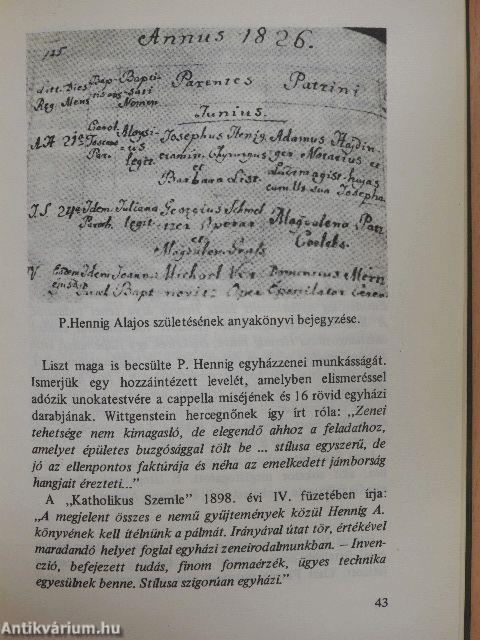 125
Annus 1826.
Parentes Patrini
Nomen
Junius.
21
Josephus Henig Adamus
legit
et
Barbara List
24 Idem Juliana Georgius
legit
Magdalena
et
Idem Joann: Michael
Bapt
P.Hennig Alajos születésének anyakönyvi bejegyzése.
Liszt maga is becsülte P. Hennig egyházzenei munkásságát.
Ismerjük egy hozzáintézett levelét, amelyben elismeréssel
adózik unokatestvére a cappella miséjének és 16 rövid egyházi
darabjának. Wittgenstein hercegnőnek így írt róla: „Zenei
tehetsége nem kimagasló, de elegendő ahhoz a feladathoz,
amelyet épületes buzgósággal tölt be ... stílusa egyszerű, de
jó az ellenpontos faktúrája és néha az emelkedett jámborság
hangjait érezteti...”
A „Katholikus Szemle” 1898. évi IV. füzetében írja:
„A megjelent összes e nemű gyűjtemények közül Hennig A.
könyvének kell ítélnünk a pálmát. Irányával útat tör, értékével
maradandó helyet foglal egyházi zeneirodalmunkban. – Inven-
czió, befejezett tudás, finom formaérzék, ügyes technika
egyesülnek benne. Stílusa szigorúan egyházi.”
43
Antikvárium.hu